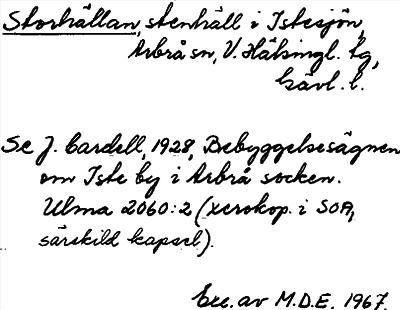 Storhällan, stenhäll i Istesjön,
Arbrå sn, V. Hälsingl. tg,
Gävl. l.
Se J. Cardell, 1928, Bebyggelsesägnen
om Iste by i Arbrå socken.
Ulma 2060:2 (xerokop. i SOA,
särskild kapsel).
Exc. av M.D.E. 1967.